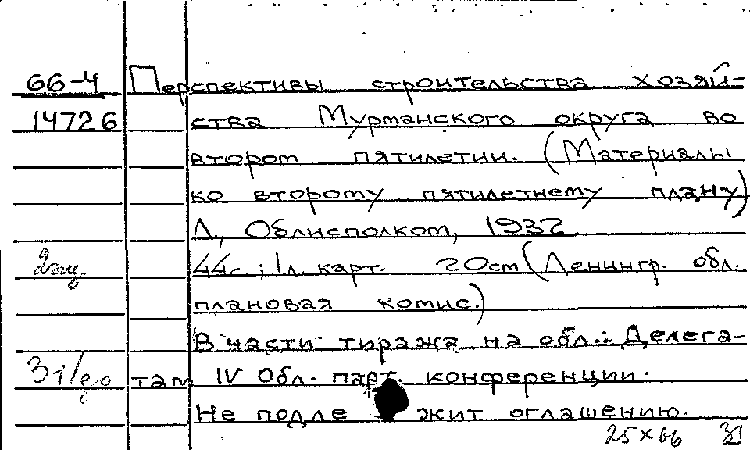 66-4 Перспективы строительства хозяй-
14726 ства Мурманского округа во
втором пятилетии. (Материалы
ко второму пятилетнему плану)
Л, Облисполком, 1932
44с; 1л. карт. 20см (Ленингр. обл.
плановая комис.)
В части тиража на обл.: Делега-
там IV Обл. парт. конференции.
Не подлежит оглашению.
25×66